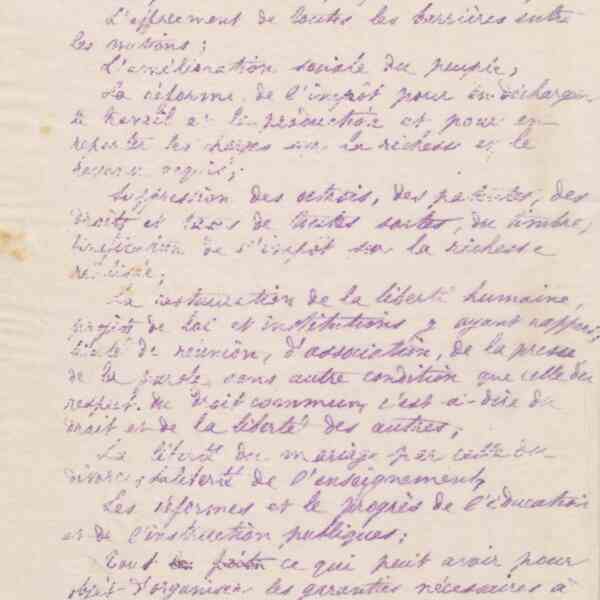 L'effacement de toutes les barrières entre
les nations;
L'amélioration sociale du peuple;
La réforme de l'impôt pour en décharger
le travail et la production et pour en
reporter les charges sur la richesse et le
revenu acquis;
Suppression des octrois, des patentes, des
droits et taxes de toutes sortes, du timbre,
unification de l'impôt sur la richesse
réalisée;
La restauration de la liberté humaine,
projets de loi et institutions y ayant rapport;
liberté de réunion, d'association, de la presse
de la parole sans autre condition que celle du
respect du droit commun, c'est-à-dire du
droit et de la liberté des autres;
La liberté du mariage par celle du
divorce; la liberté de l'enseignement,
Les réformes et le progrès de l'éducation
et de l'instruction publiques;
Tout ce qui peut avoir pour
objet d'organiser les garanties nécessaires à